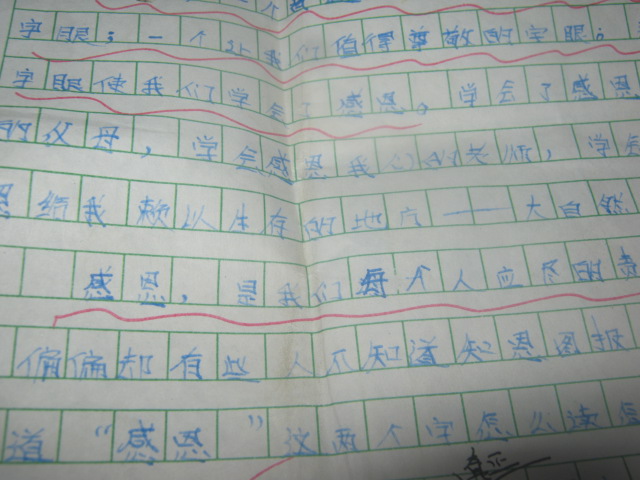 一个
字眼；一个让我们值得尊敬的字眼；
字眼使我们学会了感恩。学会了感恩
的父母，学会感恩我们的老师，学会
恩给我赖以生存的地方——大自然
感恩，是我们每个人应尽的责
偏偏却有些人不知道知恩图报
道“感恩”这两个字怎么读怎